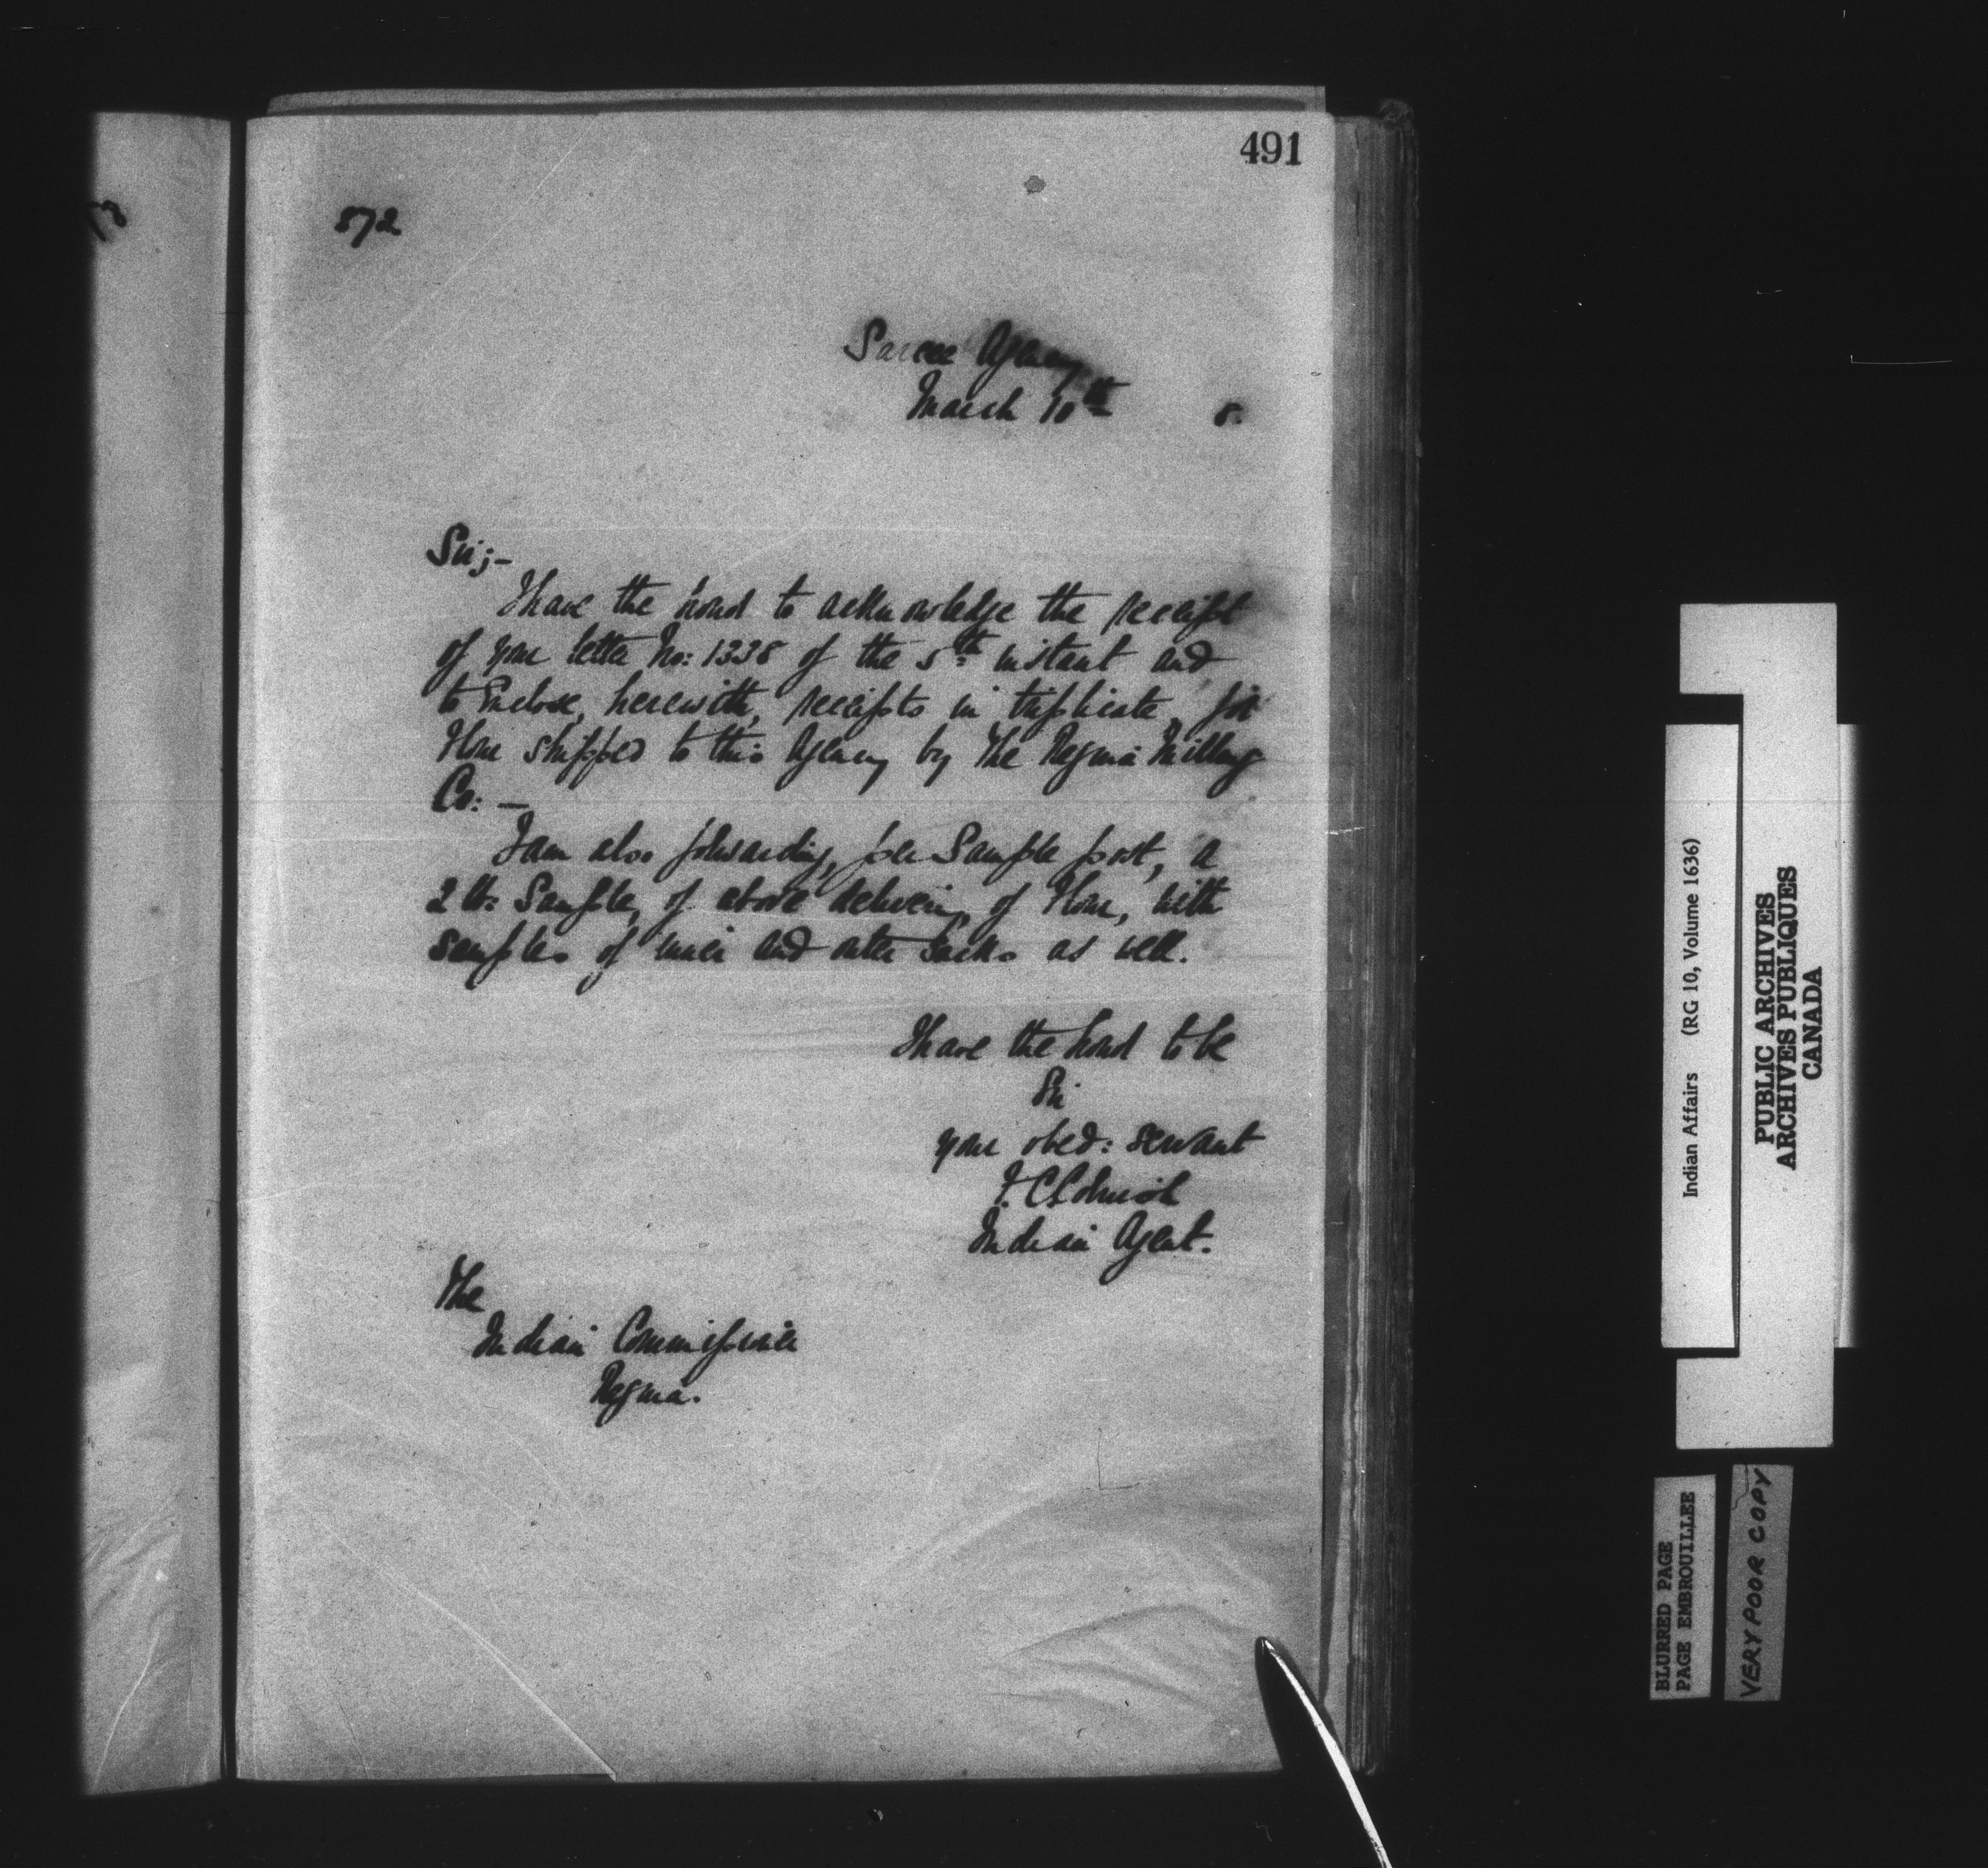 491
872
Sarcee Agency
March 10th 8.
Sir;-
I have the honor to acknowledge the receipt
of your letter No: 1338 of the 5th instant and
to Enclose, herewith, receipts in triplicate, for
Flour shipped to this Agency by The Regina Milling
Co: —
I am also forwarding, per Sample post, a
2 lb: Sample, of above delivery, of Flour, with
samples of inner and outer Sacks as well.
I have the honor to be
Sir
your obed: servant
Indian Agent.
The
Indian Commissioner
Regina.
Indian Affairs (RG 10, Volume 1636)
PUBLIC ARCHIVES
ARCHIVES PUBLIQUES
CANADA
BLURRED PAGE
PAGE EMBROUILLEE
VERY POOR COPY